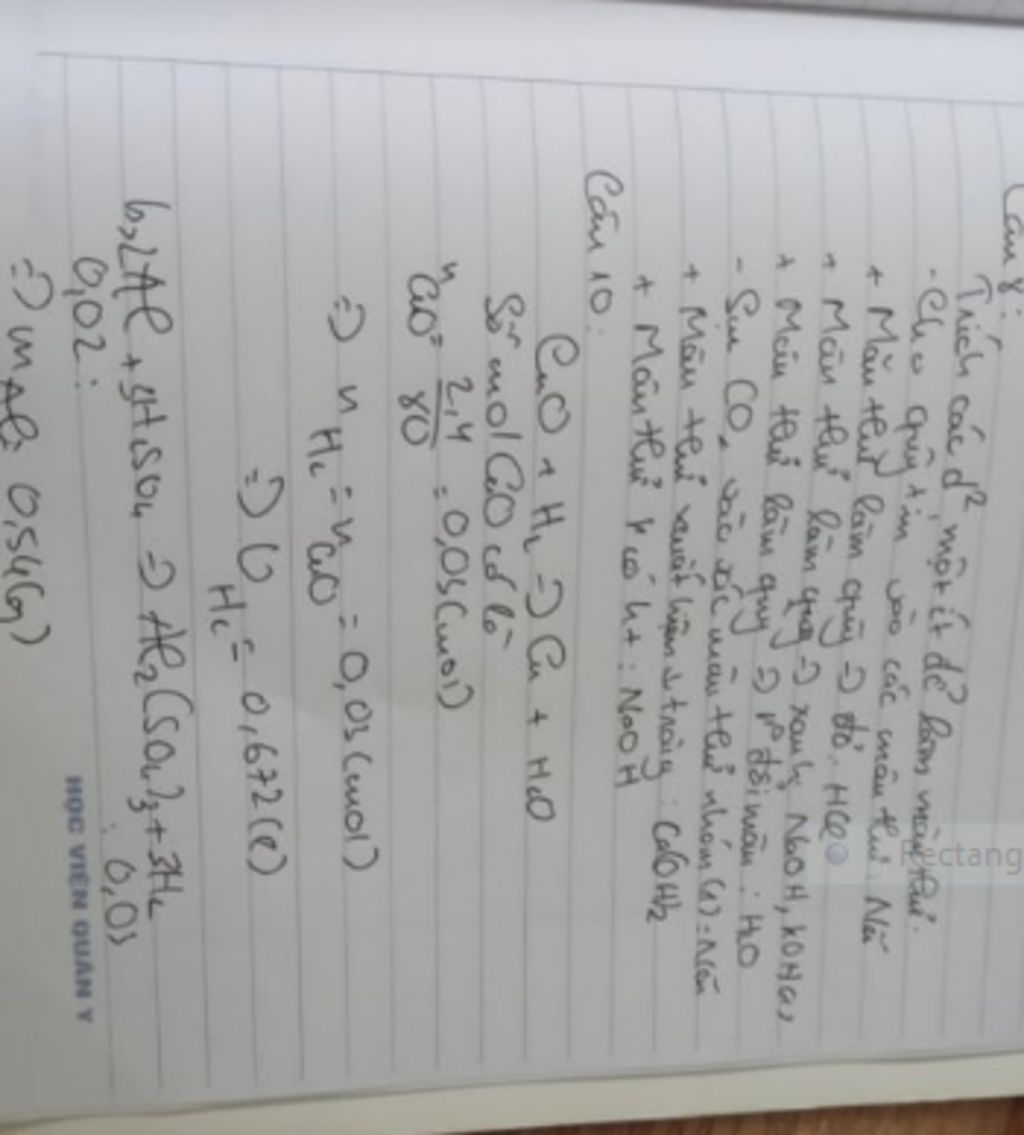 Câu 8:
Trích các d², một ít để làm mẫu thử.
- Cho quỳ tím vào các mẫu thử. Nếu
+ Mẫu thử làm quỳ => đỏ. HCl
+ Mẫu thử làm quỳ => xanh NaOH,
+ Mẫu thử làm quỳ => k° đổi màu: H₂O
- Sục CO₂ vào các mẫu thử nhóm (1). Nếu
+ Mẫu thử xuất hiện ↓ trắng: Ca(OH)₂
+ Mẫu thử k có ht: NaOH
Câu 10:
CuO + H₂ => Cu + H₂O
Số mol CuO có là
nCuO = 2,4/80 = 0,03 (mol)
=> nH₂ = nCuO = 0,03 (mol)
=> VH₂ = 0,672 (l)
b, 2Al + 3H₂SO₄ => Al₂(SO₄)₃ + 3H₂
0,02 : : 0,03
=> mAl = 0,54 (g)
HỌC VIỆN QUÂN Y
Rectang